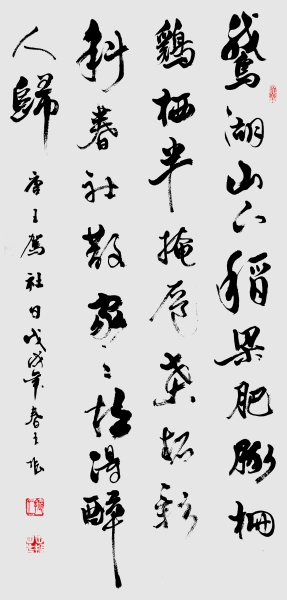 鵞湖山下稻粱肥豚柵
鷄栖半掩扉桑柘影
斜春社散家〻扶得醉
人歸 唐王駕社日戊戌年春